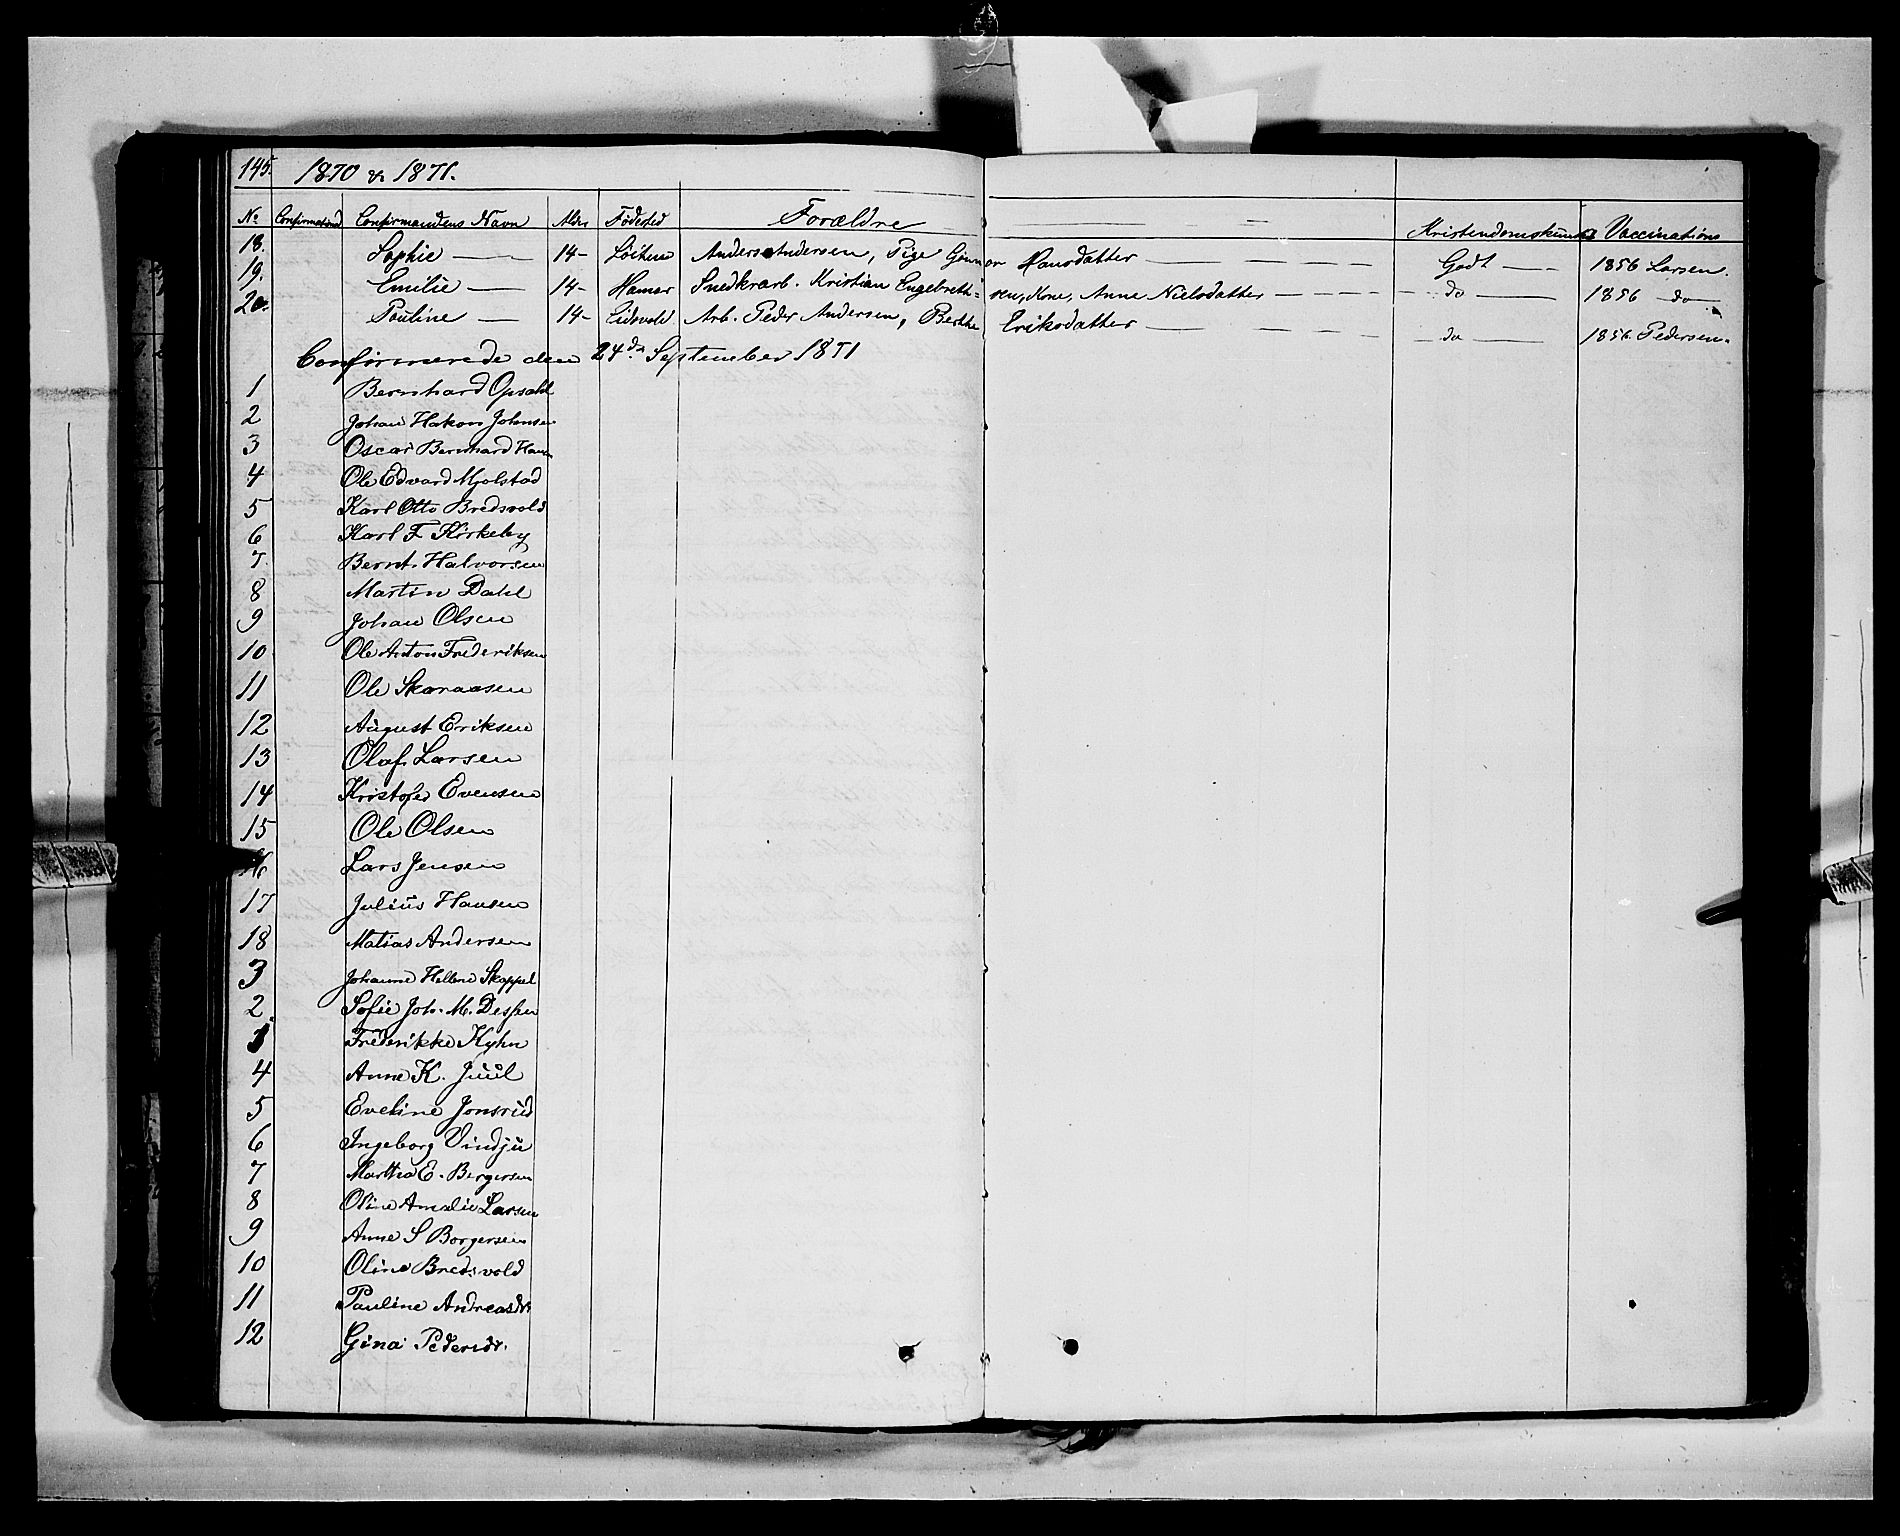 145. 1870 & 1871.
No Confirmationd Confirmandens Navn Alder Fødested Forældre — — Kristendomskundsk Vaccinations
18. Sophie — 14- Løiten Anders Andersen, Pige Hansdatter — — — — Godt — 1856 Larsen.
19. Emilie — 14- Hamar Snedkrarb. Kristian Engebreth-sen, Kone, Anne Nielsdatter — — — — do — 1856 do
20. Pauline — 14- Eidsvold Arb. Peder Andersen, Berthe Eriksdatter — — — — do — 1856 Pedersen.
Confirmerede den 24de September 1871
1 Bernhard Opsahl
2 Johan Hakon Johnsen
3 Oscar Bernhard Hansen
4 Ole Edvard Mjølstad
5 Karl Otto Bredsvold
6 Karl F Kirkeby
7. Bernt Halvorsen
8 Martin Dahl
9 Johan Olsen
10 Ole Anton Frederiksen
11 Ole Skaraasen
12 August Eriksen
13 Olaf Larsen
14 Kristofer Evensen
15 Ole Olsen
16 Lars Jensen
17 Julius Hansen
18 Matias Andersen
3 Johanne Hellene Skappel
2. Sofie Joh. M. Dessen
1 Frederikke Kyhn
4 Anne K. Juul
5 Eveline Jonsrud
6 Ingeborg Vindju
7 Martha E. Bergersen
8 Oline Amalie Larsen
9 Anne S Borgersen
10 Oline Bredsvold
11 Pauline Andreasdt.
12 Gina Pedersdt.